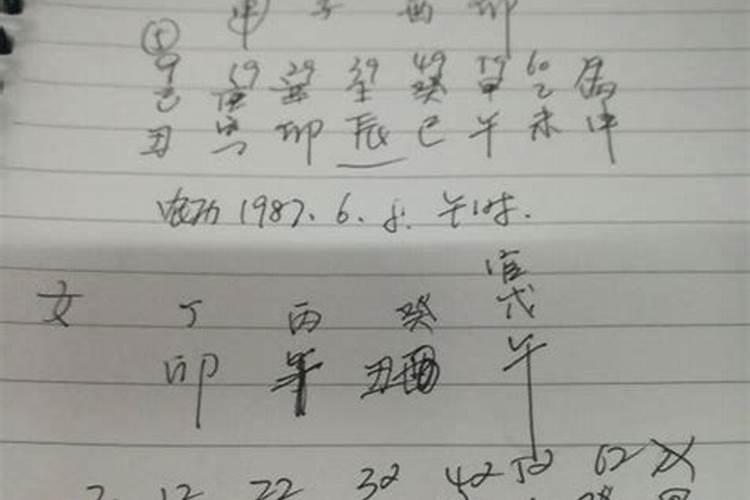 子 酉 卯
⑤
9 19 29 39 49 59
己 庚 辛 壬 癸 甲 乙 丙
丑 寅 卯 辰 巳 午 未 申
农历 1987. 6. 8. 午时.
官
女 丁 丙 癸 戊
卯 午 丑 酉 午
2 12 22 32 42 52 62